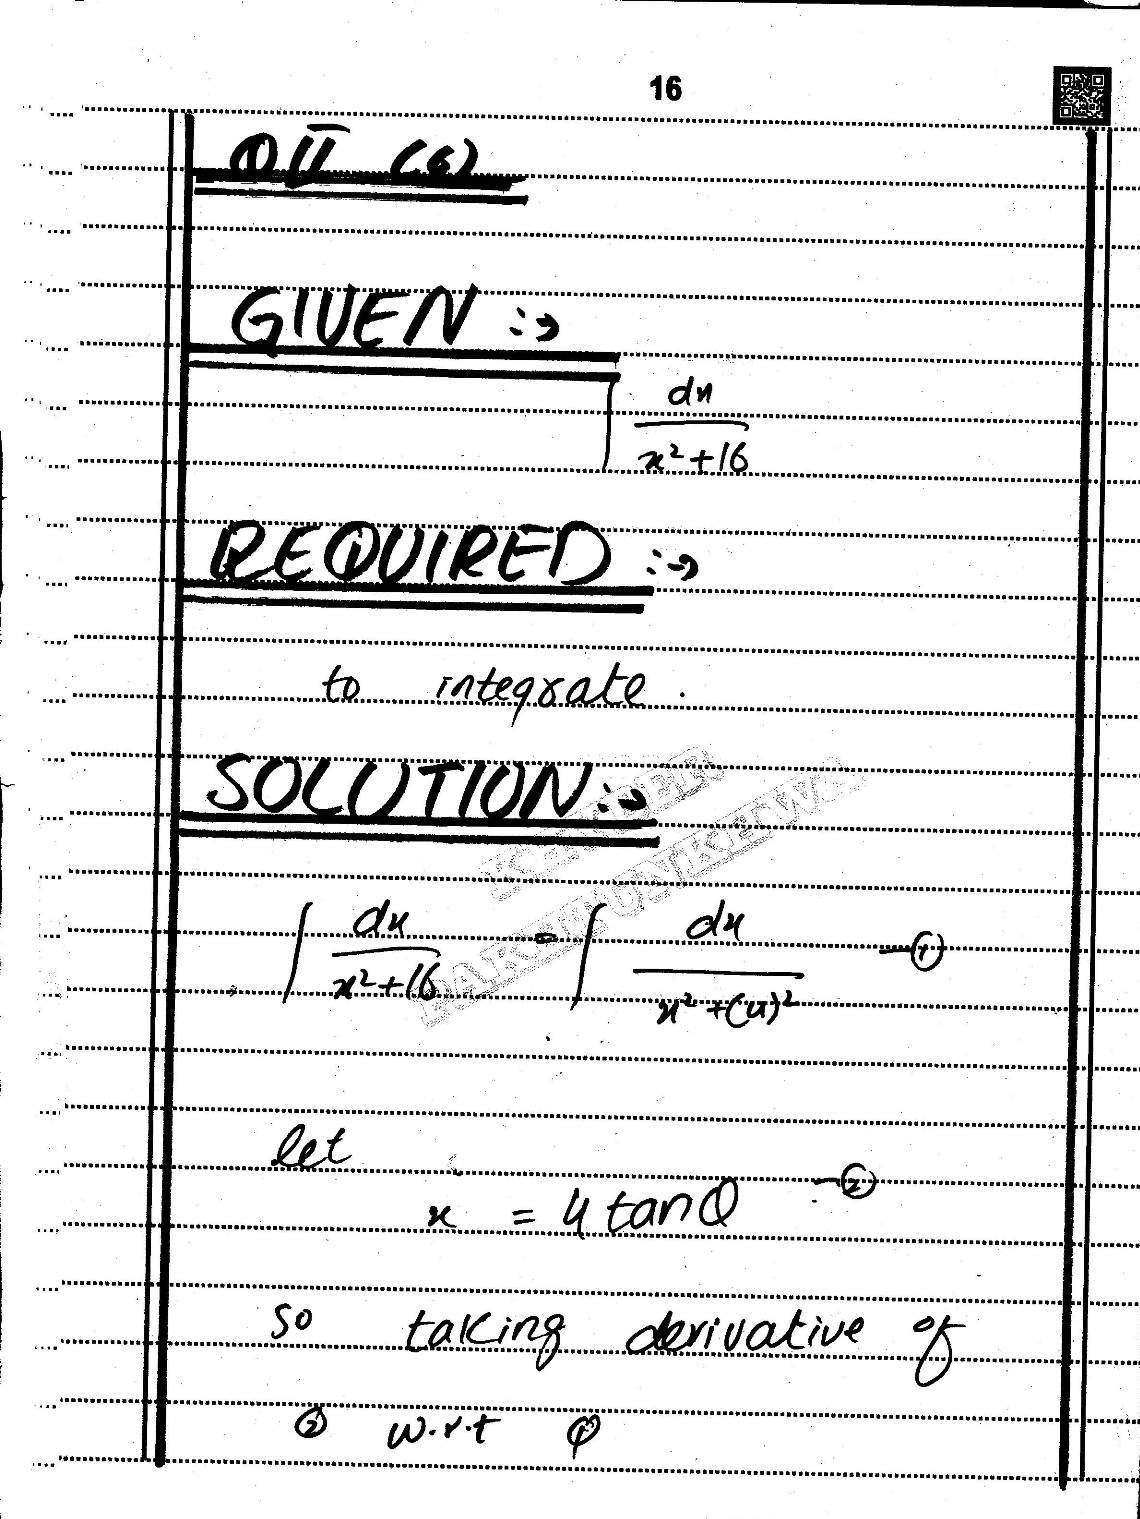 16
Q II (6)
GIVEN :→
∫ dx / x² + 16
REQUIRED :→
to integrate.
SOLUTION :→
∫ dx / x² + 16 = ∫ dx / x² + (4)² — ①
let
x = 4 tanθ — ②
so taking derivative of
② w.r.t θ